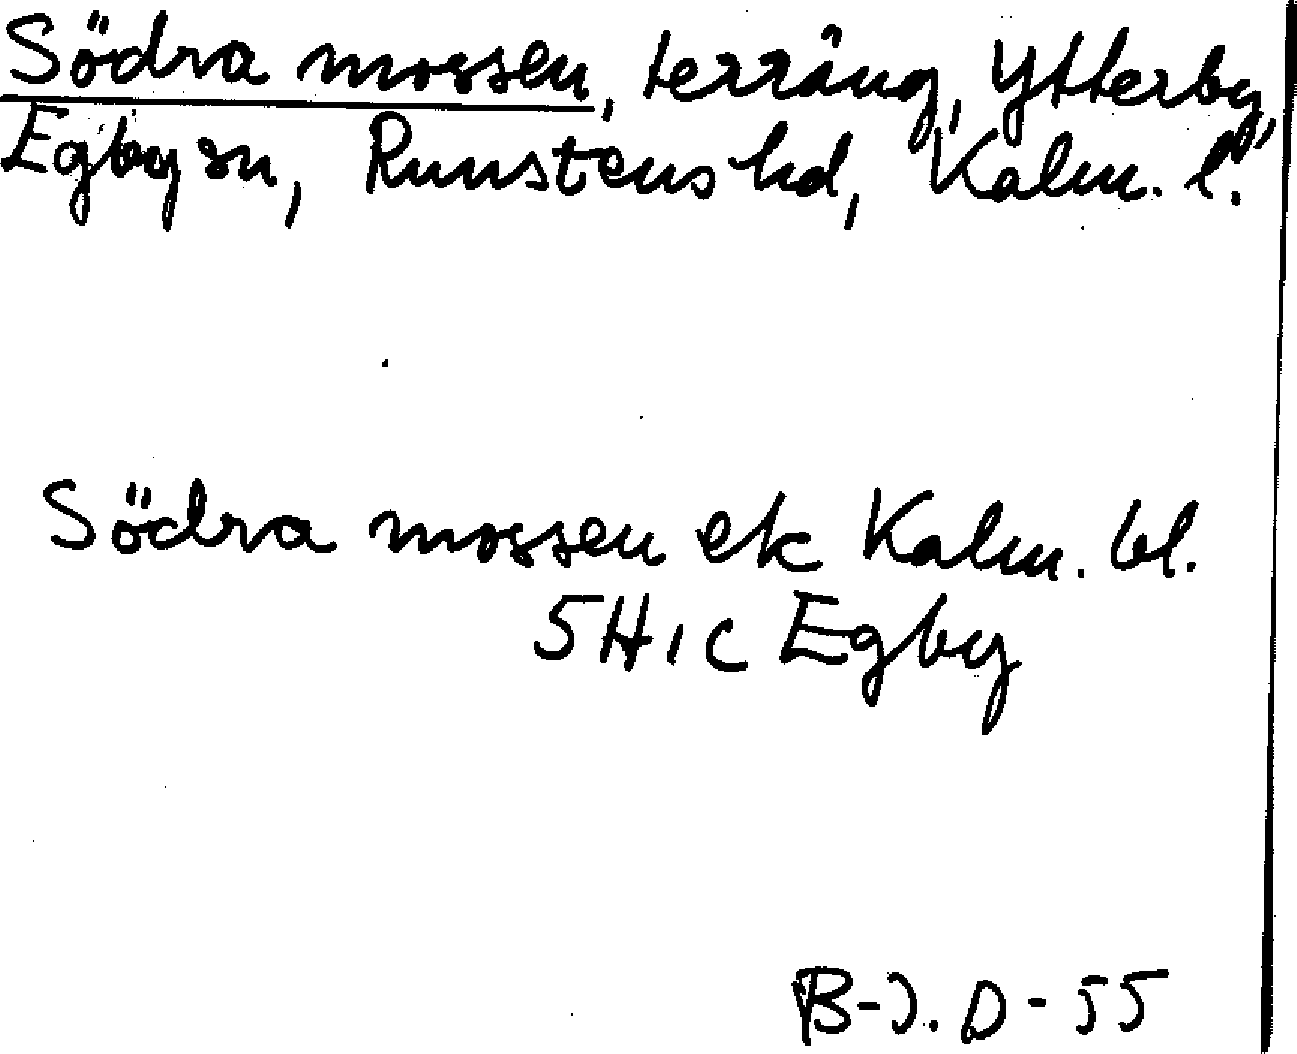 Södra mossen, terräng, Ytterby,
Egby sn, Runstens hd, Kalm. l.
Södra mossen ek Kalm. bl.
5H1c Egby
B-J. D-55